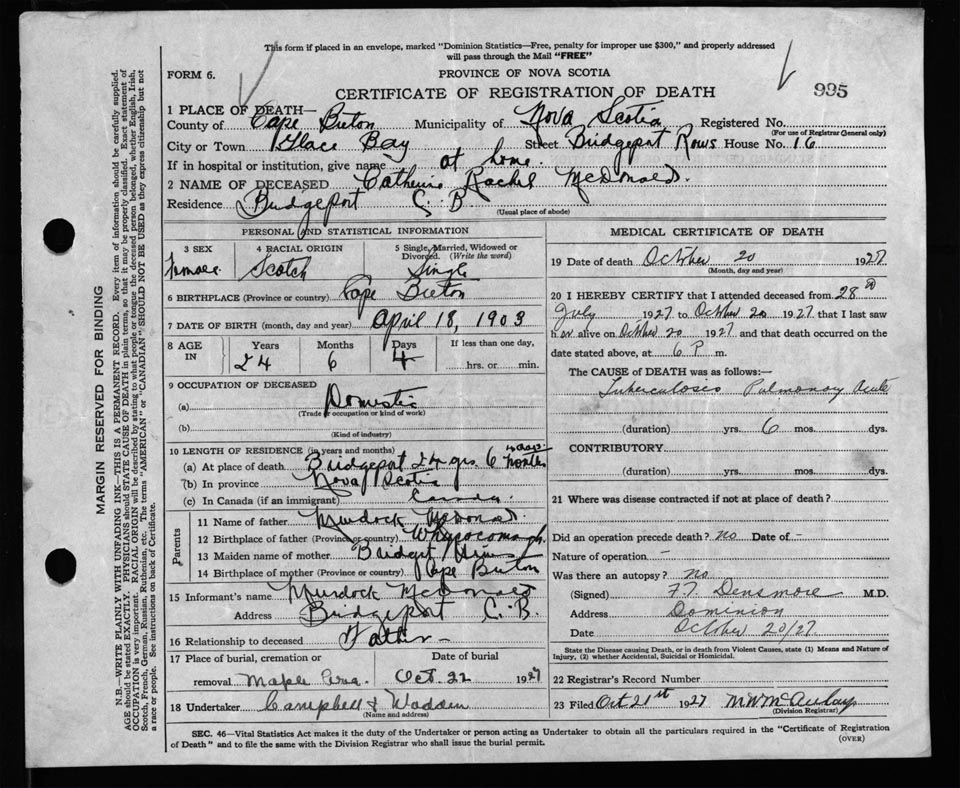 This form if placed in an envelope, marked "Dominion Statistics—Free, penalty for improper use $300," and properly addressed
will pass through the Mail "FREE"
FORM 6.
PROVINCE OF NOVA SCOTIA
CERTIFICATE OF REGISTRATION OF DEATH
995
1 PLACE OF DEATH—
County of Cape Breton Municipality of Nova Scotia Registered No.
(For use of Registrar General only)
City or Town Glace Bay Street Bridgeport Rows House No. 16
If in hospital or institution, give name at home
2 NAME OF DECEASED Catherine Rachel McDonald.
Residence Bridgeport C. B.
(Usual place of abode)
PERSONAL AND STATISTICAL INFORMATION
3 SEX
Female
4 RACIAL ORIGIN
Scotch
5 Single, Married, Widowed or
Divorced. (Write the word)
Single
6 BIRTHPLACE (Province or country) Cape Breton
7 DATE OF BIRTH (month, day and year) April 18, 1903
8 AGE IN
Years Months Days If less than one day,
24 6 4 hrs. or min.
9 OCCUPATION OF DECEASED
(a) Domestic
(Trade or occupation or kind of work)
(b)
(Kind of industry)
10 LENGTH OF RESIDENCE (in years and months)
(a) At place of death Bridgeport 24 yrs 6 months
(b) In province Nova Scotia
(c) In Canada (if an immigrant) Canada.
Parents
11 Name of father Murdock McDonald.
12 Birthplace of father (Province or country) Whycocomagh.
13 Maiden name of mother Bridget
14 Birthplace of mother (Province or country) Cape Breton
15 Informant's name Murdock McDonald
Address Bridgeport C. B.
16 Relationship to deceased Father —
17 Place of burial, cremation or Date of burial
removal Maple Oct. 22 1927
18 Undertaker Campbell & Wadden
(Name and address)
MEDICAL CERTIFICATE OF DEATH
19 Date of death October 20 1927
(Month, day and year)
20 I HEREBY CERTIFY that I attended deceased from 28
July 1927 to October 20 1927 that I last saw
her alive on October 20 1927 and that death occurred on the
date stated above, at 6 P m.
The CAUSE of DEATH was as follows:—
Tuberculosis Pulmonary Acute
(duration) yrs. 6 mos. dys.
CONTRIBUTORY
(duration) yrs. mos. dys.
21 Where was disease contracted if not at place of death?
Did an operation precede death? no Date of -
Nature of operation —
Was there an autopsy? no
(Signed) F. T. Densmore M.D.
Address Dominion
Date October 20/27.
State the Disease causing Death, or in death from Violent Causes, state (1) Means and Nature of
Injury, (2) whether Accidental, Suicidal or Homicidal.
22 Registrar's Record Number
23 Filed Oct 21st 1927 M W McAulay
(Division Registrar)
SEC. 46—Vital Statistics Act makes it the duty of the Undertaker or person acting as Undertaker to obtain all the particulars required in the "Certificate of Registration
of Death" and to file the same with the Division Registrar who shall issue the burial permit.
(OVER)
MARGIN RESERVED FOR BINDING
N.B.—WRITE PLAINLY WITH UNFADING INK—THIS IS A PERMANENT RECORD. Every item of information should be carefully supplied.
AGE should be stated EXACTLY. PHYSICIANS should STATE CAUSE OF DEATH in plain terms, so that it may be properly classified. Exact statement of
OCCUPATION is very important. RACIAL ORIGIN will be described by stating to what people or tongue the deceased person belonged, whether English, Irish,
Scotch, French, German, Russian, Ruthenian, etc. The terms "AMERICAN" or "CANADIAN" SHOULD NOT BE USED as they express citizenship but not
a race or people. See instructions on back of Certificate.